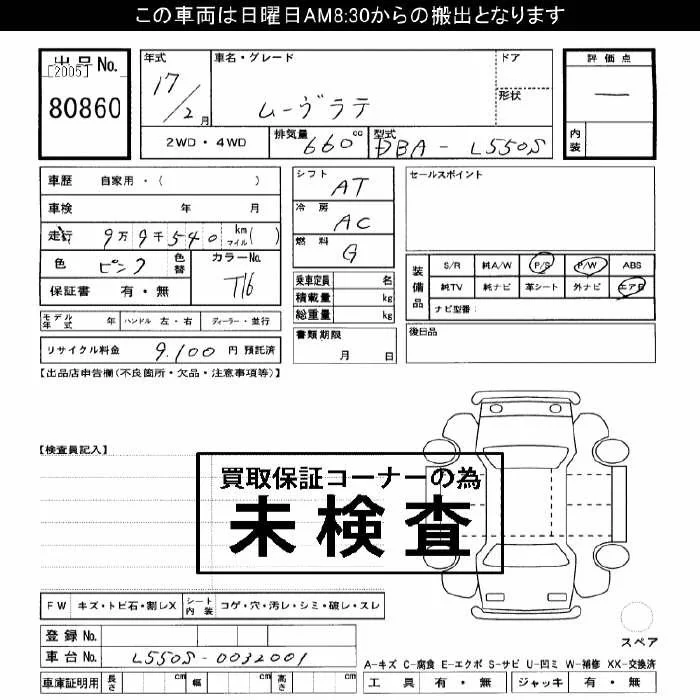 この車両は日曜日AM8:30からの搬出となります
出品No.
[2005]
80860
年式
17/2月
車名・グレード
ムーヴラテ
ドア
形状
評価点
―
内装
2WD・4WD
排気量 660 cc
型式 DBA-L550S
車歴 自家用・( )
車検 年 月
走行 9万9千540 km マイル( )
色 ピンク 色替
カラーNo. T16
保証書 有・無
シフト AT
冷房 AC
燃料 G
セールスポイント
装備品
S/R 純A/W P/S P/W ABS
純TV 純ナビ 革シート 外ナビ エアB
ナビ型番:
乗車定員 名
積載量 kg
総重量 kg
モデル年式 年 ハンドル 左・右 ディーラー・並行
書類期限
月 日
後日品
リサイクル料金 9,100 円 預託済
【出品店申告欄(不良箇所・欠品・注意事項等)】
【検査員記入】
買取保証コーナーの為
未検査
FW キズ・トビ石・割レX シート内装 コゲ・穴・汚レ・シミ・破レ・スレ
登録No.
車台No. L550S-0032001
車庫証明用 長さ cm 幅 cm 高さ cm
スペア
A-キズ C-腐食 E-エクボ S-サビ U-凹ミ W-補修 XX-交換済
工具 有・無 ジャッキ 有・無